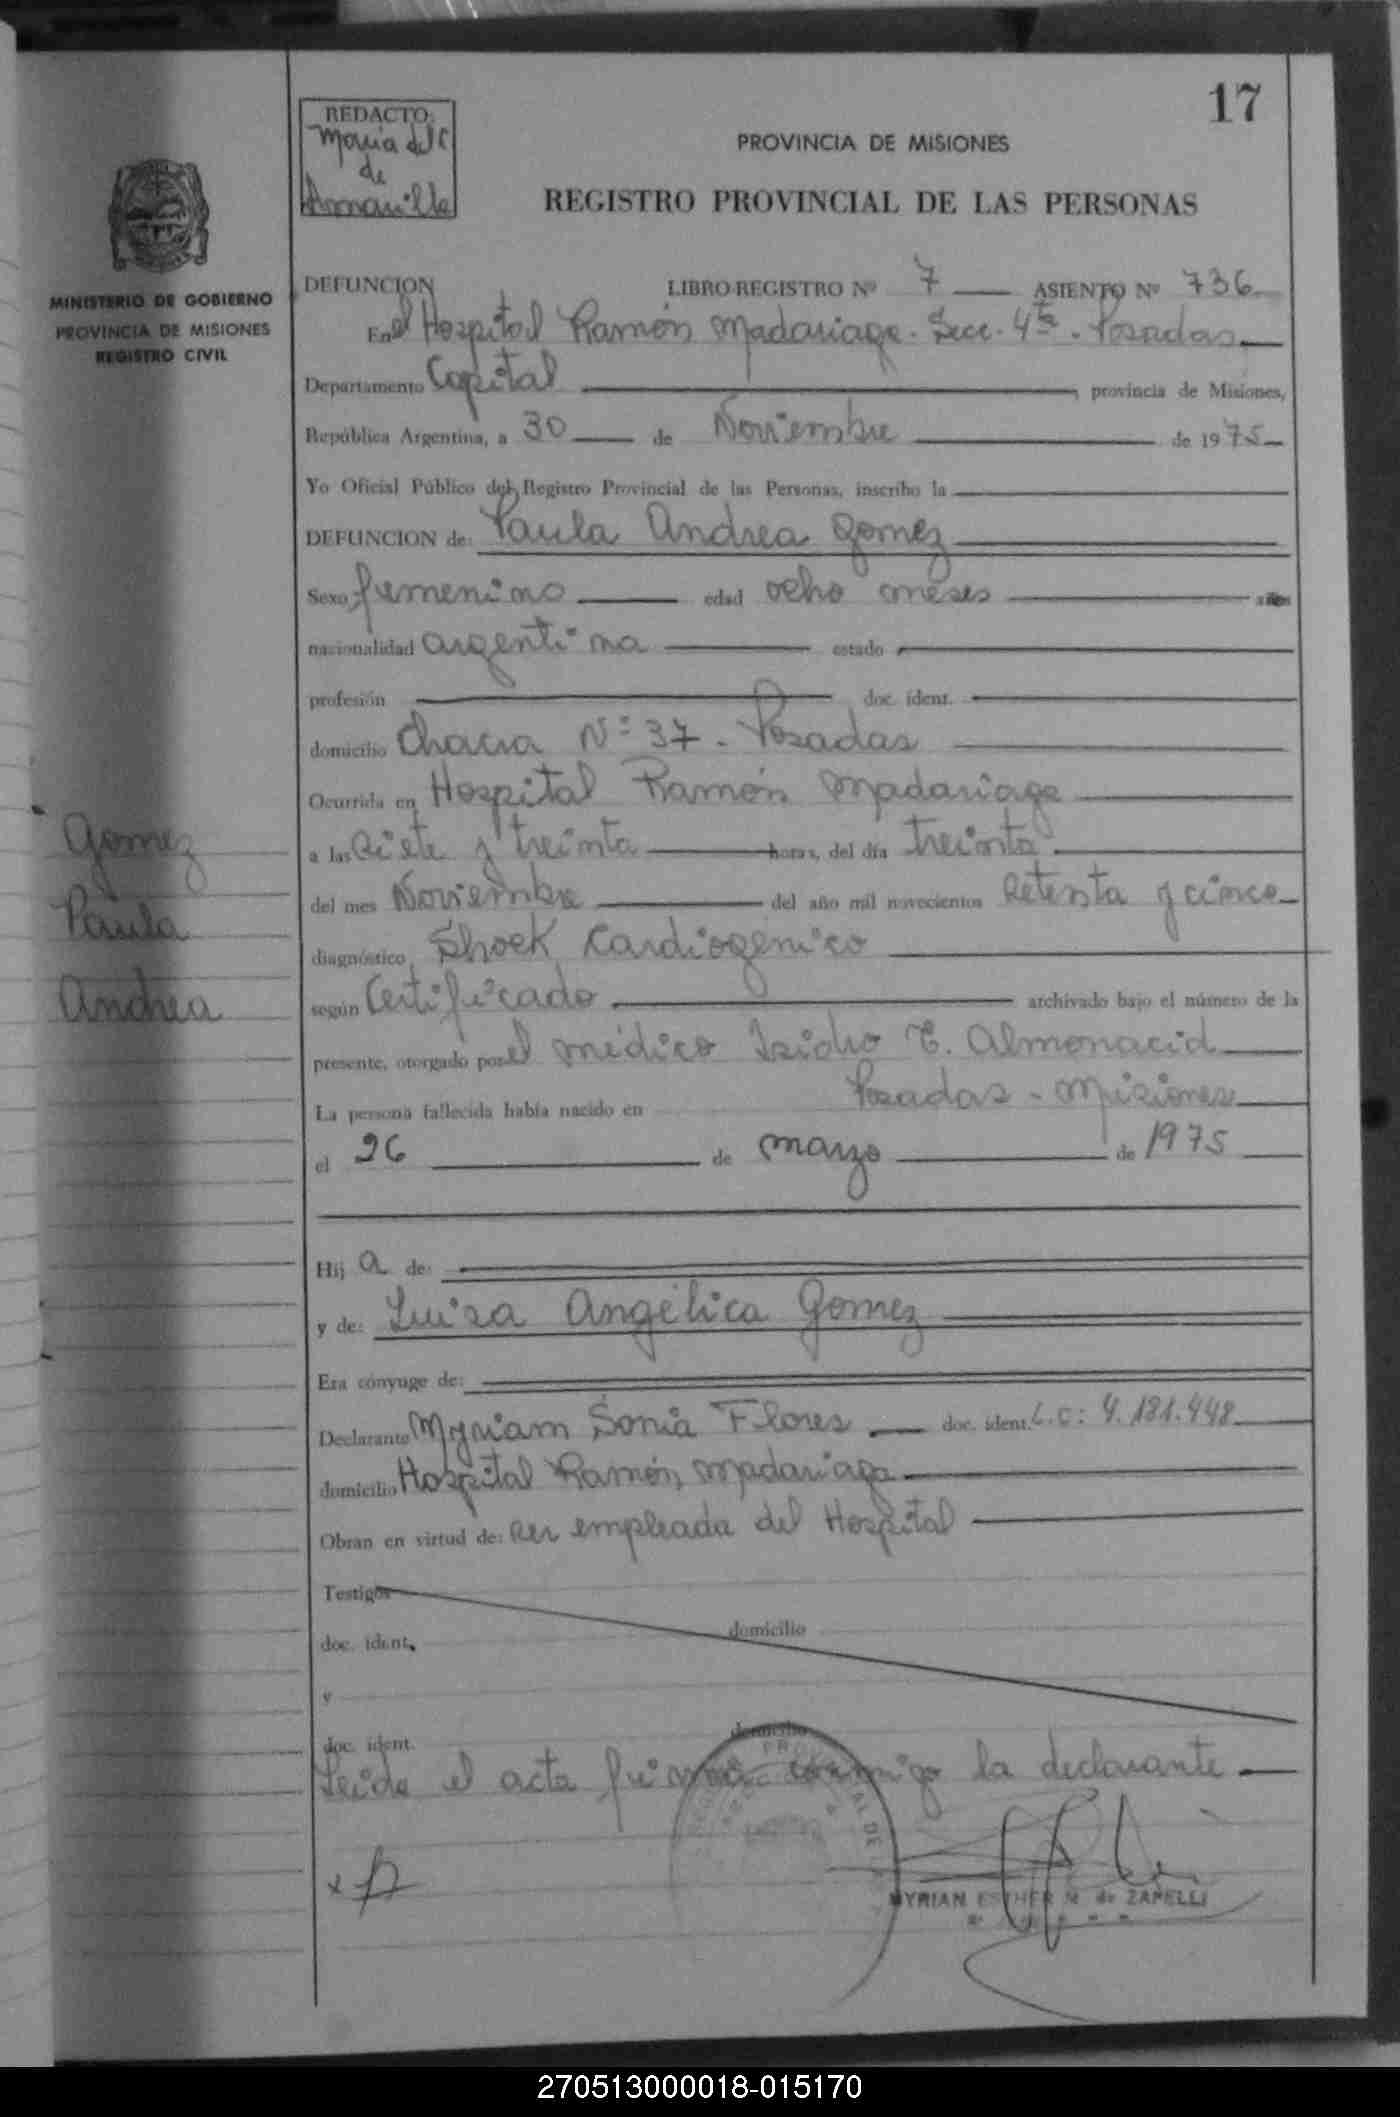 17
REDACTO:
Maria del C
de
PROVINCIA DE MISIONES
REGISTRO PROVINCIAL DE LAS PERSONAS
MINISTERIO DE GOBIERNO
PROVINCIA DE MISIONES
REGISTRO CIVIL
DEFUNCION LIBRO-REGISTRO Nº 7 ASIENTO Nº 736
En el Hospital Ramón Madariaga. Secc. 4ta. Posadas
Departamento Capital, provincia de Misiones,
República Argentina, a 30 de Noviembre de 1975
Yo Oficial Público del Registro Provincial de las Personas, inscribo la
DEFUNCION de: Paula Andrea Gomez
Sexo femenino edad ocho meses años
nacionalidad argentina estado
profesión doc. ident.
domicilio Chacra Nº 37. Posadas
Ocurrida en Hospital Ramón Madariaga
a las siete y treinta horas, del día treinta
del mes Noviembre del año mil novecientos setenta y cinco
diagnóstico Shock Cardiogenico
según Certificado archivado bajo el número de la
presente, otorgado por el médico Isidro E. Almonacid
La persona fallecida había nacido en Posadas - Misiones
el 26 de marzo de 1975
Hij a de:
y de: Luisa Angélica Gomez
Era cónyuge de:
Declarante Myriam Sonia Flores doc. ident. L.C: 4.181.448
domicilio Hospital Ramón Madariaga
Obran en virtud de: ser empleada del Hospital
Testigos
domicilio
doc. ident.
y
domicilio
doc. ident.
Leida el acta firma conmigo la declarante
MYRIAN ESTHER N. de ZAPELLI
Gomez
Paula
Andrea
270513000018-015170